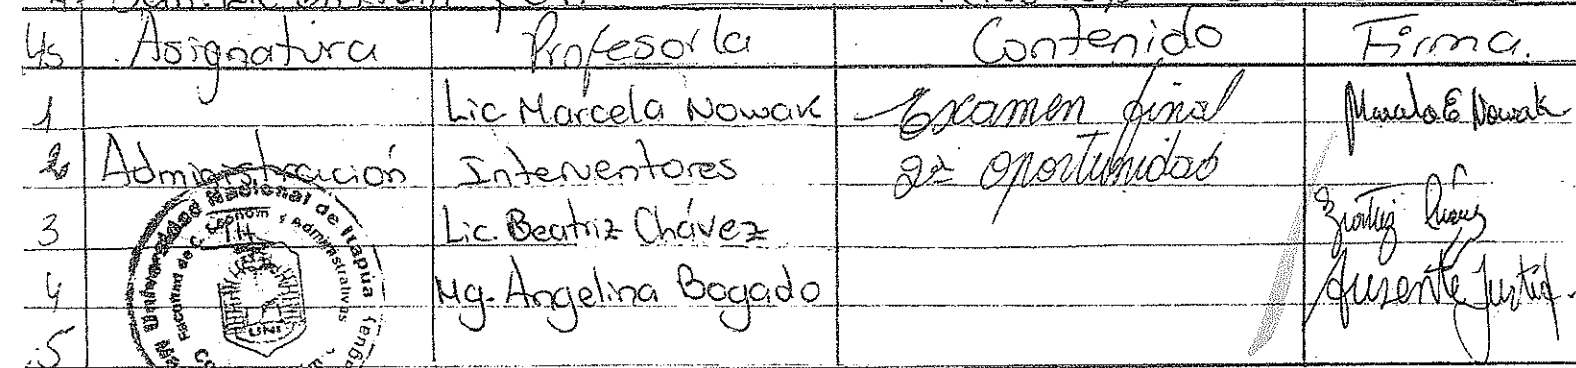 Hs Asignatura Profesor/a Contenido Firma.
1 Lic Marcela Nowak Examen final Marcela E Nowak
2 Administración Interventores 2ª oportunidad
3 Lic. Beatriz Chávez
4 Mg. Angelina Bogado Ausente Justif.
5
Universidad Nacional de Itapúa
Facultad de C. Econom y Administrativas
UNI